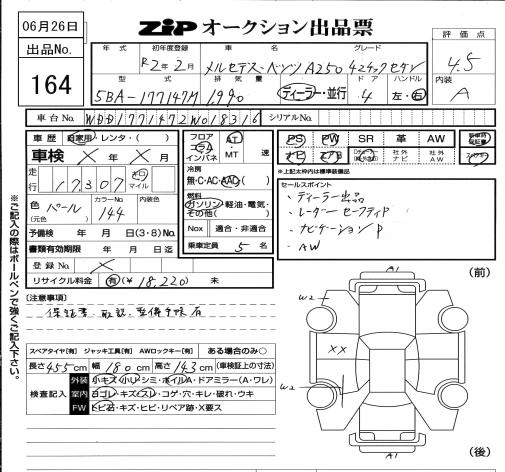 06月26日
ZiP オークション出品票
出品No.
164
年式 初年度登録 車名 グレード
R2年2月 メルセデス・ベンツ A250 4マチックセダン
型式 排気量 ドア ハンドル
5BA-177147M 1,990 ディーラー・並行 4 左・右
評価点
4.5
内装
A
車台No. WDD1771472W018316 シリアルNo.
車歴 自家用・レンタ・( )
車検 × 年 × 月
走行 17,307 キロ マイル
色 (元色) パール カラーNo. 144 内装色
予備検 年 月 日(3・8)No.
書類有効期限 年 月 日迄
登録No. ×
リサイクル料金 有(¥ 18,220 ) 未
フロア コラム インパネ AT・MT 速
冷房
無・C・AC・AAC( )
燃料
ガソリン・軽油・電気・その他( )
Nox 適合・非適合
乗車定員 5 名
PS PW SR 革 AW 新車時保証書
ナビ エアB 社外ナビ 社外AW
*上記太枠内は標準装備品
セールスポイント
・ディーラー出品
・レーダーセーフティP
・ナビゲーションP
・AW
[注意事項]
保証書、取説、整備手帳有
スペアタイヤ[有] ジャッキ工具[有] AWロックキー[有] ある場合のみ○
長さ455cm 幅180cm 高さ143cm (車検証上の寸法)
検査記入
外装 小キズ・小凹・シミ・ホイルA・ドアミラー(A・ワレ)
室内 ヨゴレ・キズ・スレ・コゲ・穴・キレ・破れ・ウキ
FW トビ石・キズ・ヒビ・リペア跡・X要ス
※ご記入の際はボールペンで強くご記入下さい。
(前)
A1
W2
××
W2
A1
(後)